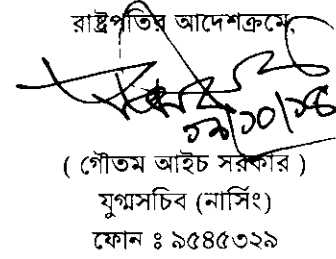 রাষ্ট্রপতির আদেশক্রমে,
( গৌতম আইচ সরকার )
যুগ্মসচিব (নার্সিং)
ফোন ঃ ৯৫৪৫৩২৯